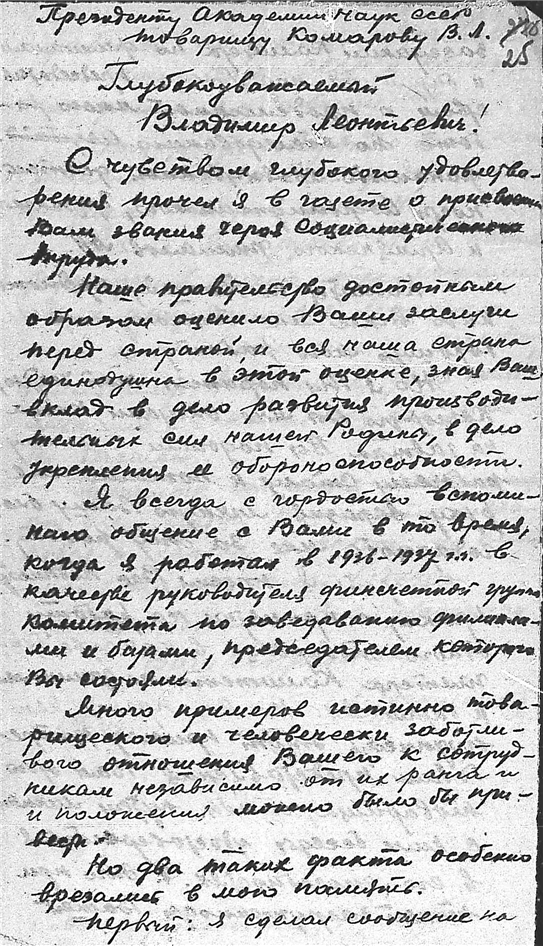 Президенту Академии Наук СССР
товарищу Комарову В. Л.
25
Глубокоуважаемый
Владимир Леонтьевич!
С чувством глубокого удовлетво-
рения прочел я в газете о присвоении
Вам звания героя социалистического
труда.
Наше правительство достойным
образом оценило Ваши заслуги
перед страной, и вся наша страна
единодушна в этой оценке, зная Ваш
вклад в дело развития производи-
тельных сил нашей Родины, в дело
укрепления ее обороноспособности.
Я всегда с гордостью вспоми-
наю общение с Вами в то время,
когда я работал в 1936-1937 г.г. в
качестве руководителя финсчетной группы
Комитета по заведованию филиала-
ми и базами, председателем которого
Вы состояли.
Много примеров истинно това-
рищеского и человечески заботли-
вого отношения Вашего к сотруд-
никам независимо от их ранга и
и положения можно было бы при-
вести.
Но два таких факта особенно
врезались в мою память.
Первый: я сделал сообщение на